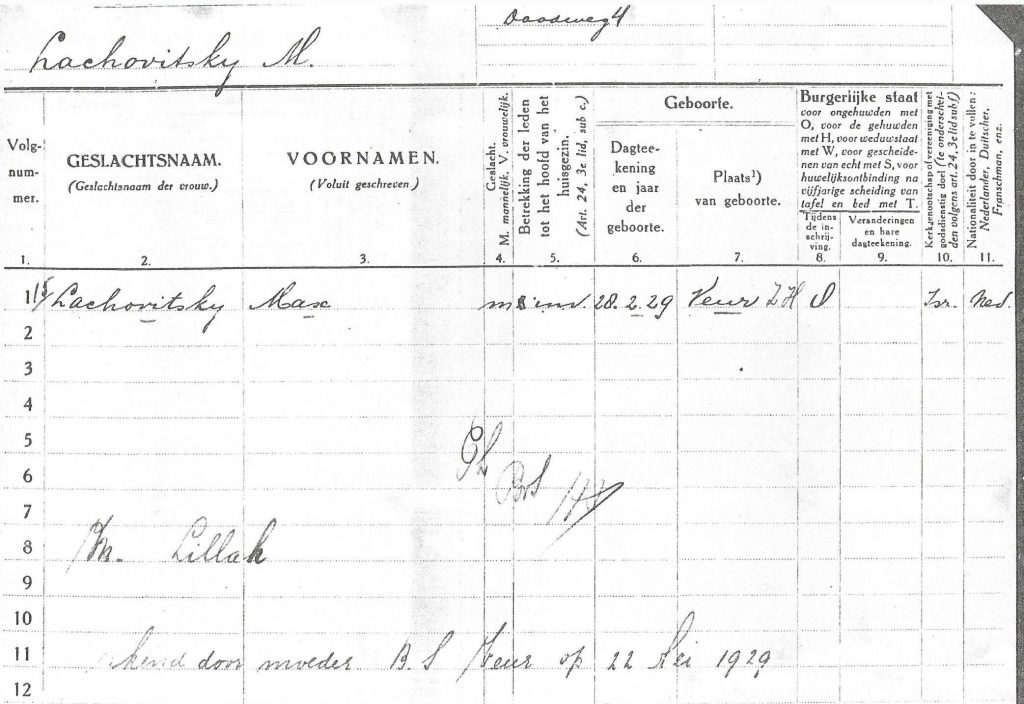 Lachovitsky M.
Volg-
num-
mer.
GESLACHTSNAAM.
(Geslachtsnaam der vrouw.)
VOORNAMEN.
(Voluit geschreven)
Geslacht.
M. mannelijk. V. vrouwelijk.
Betrekking der leden
tot het hoofd van het
huisgezin.
(Art. 24, 3e lid, sub c.)
Geboorte.
Dagtee-
kening
en jaar
der
geboorte.
Plaats¹)
van geboorte.
Burgerlijke staat
voor ongehuwden met
O, voor de gehuwden
met H, voor weduwstaat
met W, voor gescheide-
nen van echt met S, voor
huwelijksontbinding na
vijfjarige scheiding van
tafel en bed met T.
Tijdens
de in-
schrij-
ving.
Veranderingen
en hare
dagteekening.
Kerkgenootschap of vereeniging met
godsdienstig doel (te onderschei-
den volgens art. 24, 3e lid sub f)
Nationaliteit door in te vullen:
Nederlander, Duitscher,
Franschman, enz.
1. 2. 3. 4. 5. 6. 7. 8. 9. 10. 11.
1 Lachovitsky Max m 28.2.29 Veur Z.H O Isr. Ned.
2
3
4
5
6
7
8 Lillah
9
10
11 kend door moeder B.S Veur op 22 Mei 1929
12